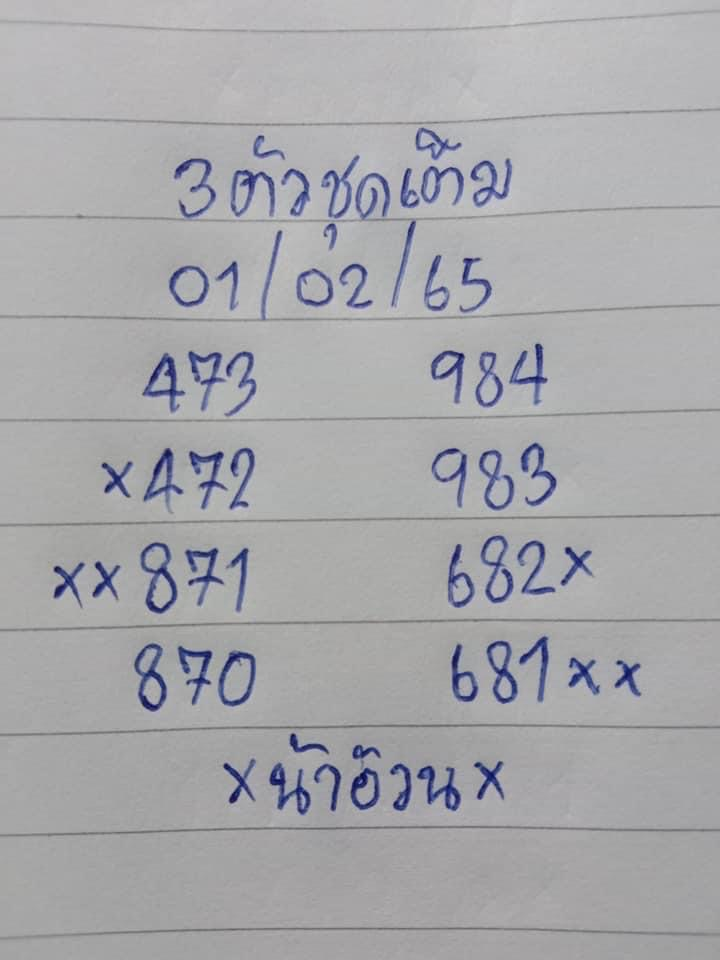 3ตัวชุดเต็ม
01/02/65
473 984
×472 983
××871 682×
870 681××
×น้าอ้วน×